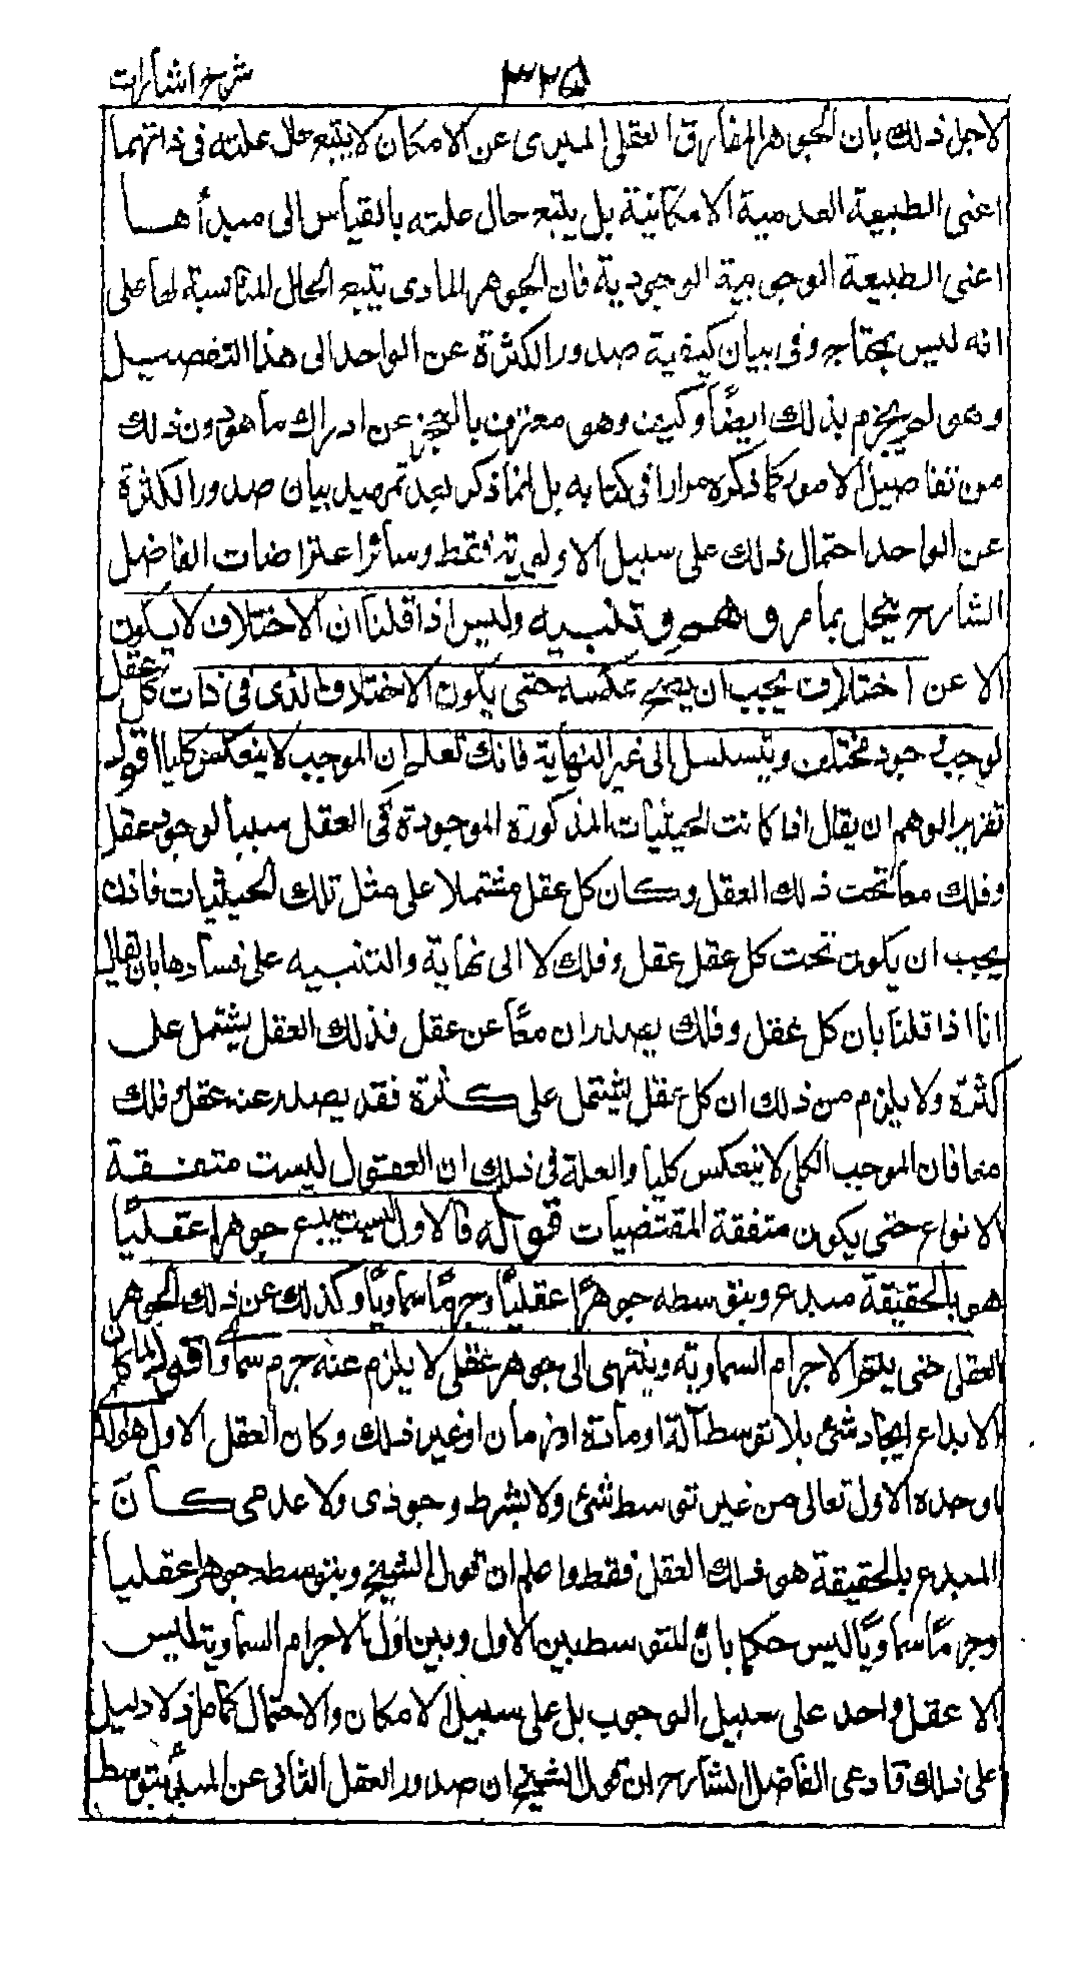 شرح اشارات ٣٢٥
لاجل ذلك بان الجوهر المفارق العقلى المبرى عن الامكان لا يتبع حال علته فى ذاتهما
اعنى الطبيعة العدمية الامكانية بل يتبع حال علته بالقياس الى مبدأها
اعنى الطبيعة الوجوبية الوجودية فان الجوهر المادى يتبع الحال المناسبة لها على
انه ليس بمحتاج فى بيان كيفية صدور الكثرة عن الواحد الى هذا التفصيل
وهو لم يجزم بذلك ايضًا وكيف وهو معترف بالعجز عن ادراك ما هو دون ذلك
من تفاصيل الامور كما ذكره مرارا فى كتابه بل انما ذكر بعد تمهيد بيان صدور الكثرة
عن الواحد احتمال ذلك على سبيل الاولوية فقط وسائر اعتراضات الفاضل
الشارح ينحل بما مر وهم وتنبيه وليس اذا قلنا ان الاختلاف لا يكون
الا عن اختلاف يجب ان يصح عكسه حتى يكون الاختلاف الذى فى ذات كل عقل
يوجب وجود مختلفين ويتسلسل الى غير النهاية فانك تعلم ان الموجب لا ينعكس كليا اقول
تقرير الوهم ان يقال اذا كانت الحيثيات المذكورة الموجودة فى العقل سببا لوجود عقل
وفلك معا تحت ذلك العقل وكان كل عقل مشتملا على مثل تلك الحيثيات فاذن
يجب ان يكون تحت كل عقل عقل وفلك لا الى نهاية والتنبيه على فسادها بان يقال
انا اذا قلنا بان كل عقل وفلك يصدران معًا عن عقل فذلك العقل يشتمل على
كثرة ولا يلزم من ذلك ان كل عقل يشتمل على كثرة فقد يصدر عنه عقل وفلك
معا فان الموجب الكلى لا ينعكس كليا والعلة فى ذلك ان العقول ليست متفقة
الانواع حتى يكون متفقة المقتضيات قوله فالاول يبدع جوهرا عقليًا
هو بالحقيقة مبدع وبتوسطه جوهرًا عقليًا وجرمًا سماويًا وكذلك عن ذلك الجوهر
العقلى حتى يتم الاجرام السماوية وينتهى الى جوهر عقلى لا يلزم عنه جرم سماوى اقول لما كان
الابداع ايجاد شئ بلا توسط آلة او مادة او زمان او غير ذلك وكان العقل الاول هو الذى
اوجده الاول تعالى من غير توسط شئ ولا بشرط وجودى ولا عدمى كانَ
المبدع بالحقيقة هو ذلك العقل فقط واعلم ان قول الشيخ وبتوسطه جوهرا عقليا
وجرمًا سماويًا ليس حكما بان المتوسط بين الاول وبين اول الاجرام السماوية ليس
الا عقل واحد على سبيل الوجوب بل على سبيل الامكان والاحتمال كما مر اذ لا دليل
على ذلك فادعى الفاضل الشارح ان قول الشيخ ان صدور العقل الثانى عن المبدأ بتوسط